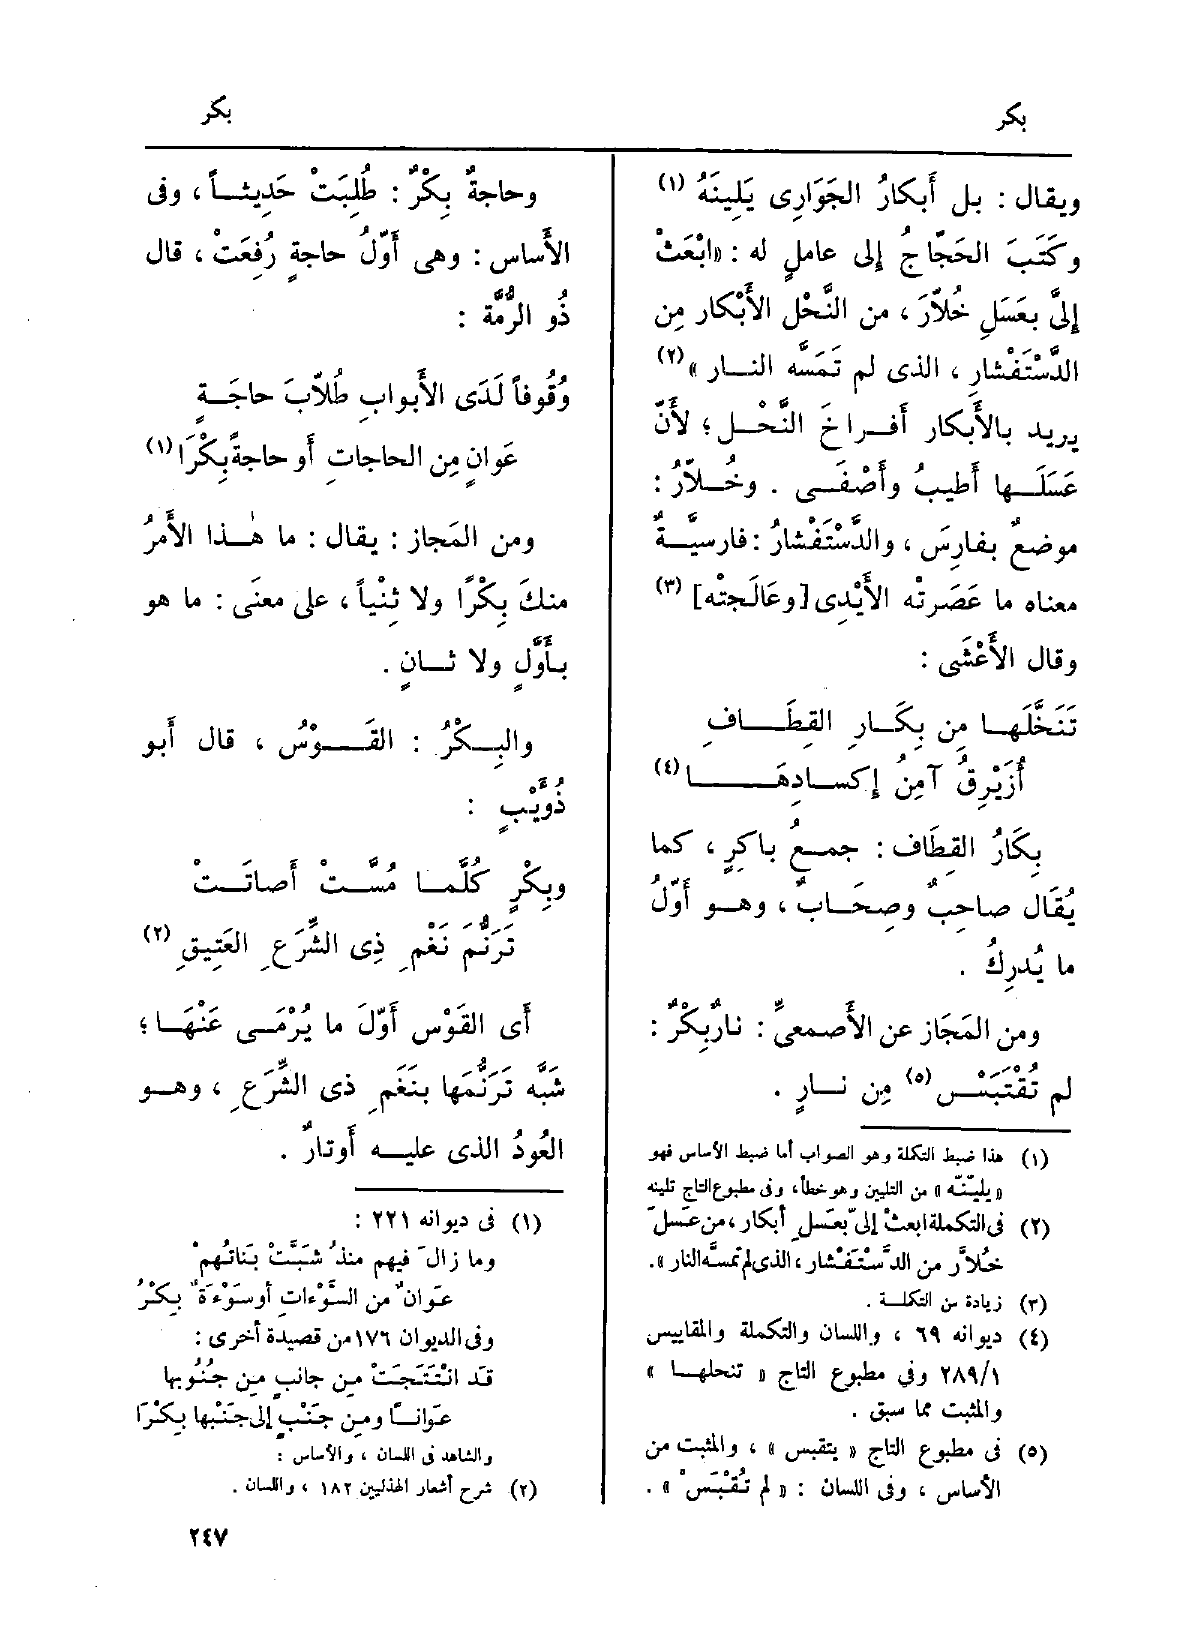 بكر
بكر
ويقال : بل أَبكارُ الجَوَارِى يَلِينَهُ (١)
وكَتَبَ الحَجّاجُ إلى عاملٍ له : «ابْعَثْ
إلىَّ بعَسَلِ خُلاّرَ ، من النَّحْل الأَبْكار مِن
الدَّسْتَفْشارِ ، الذى لم تَمَسَّه النــار » (٢)
يريد بالأَبكار أفــراخَ النَّحْــل ؛ لأَنّ
عَسَلَــها أَطيبُ وأَصْفَــى . وخُــلاّرُ :
موضعٌ بفارِسَ ، والدَّسْتَفْشارُ : فارسيَّــةٌ
معناه ما عَصَرتْه الأَيْدِى [وعَالَجتْه] (٣)
وقال الأَعْشَى :
تَنَخَّلَهــا مِن بِكَــارِ القِطَــــافِ
أُزَيْرِقُ آمِنُ إكســادِهَـــــا (٤)
بِكَارُ القِطَاف : جمــعُ باكِرٍ ، كما
يُقَال صاحِبٌ وصِحَــابٌ ، وهــو أَوّلُ
ما يُدرِكُ .
ومن المَجَاز عن الأَصمعىِّ : نارٌ بِكْرٌ :
لم تُقْتَبَــسْ (٥) مِن نــارٍ .
(١) هذا ضبط التكلة وهو الصواب أما ضبط الأساس فهو
«يليّنّه» من التليين وهو خطأ، وفى مطبوع التاج تلينه
(٢) فى التكملة ابعثْ إلىّ بعَسلِ أبكار ، من عَسلَ
خُلاَّر من الدَّسْتَفْشار ، الذى لم تمسَّه النار » .
(٣) زيادة من التكلــة .
(٤) ديوانه ٦٩ ، واللسان والتكملة والمقاييس
٢٨٩/١ وفى مطبوع التاج « تنحلهــا »
والمثبت مما سبق .
(٥) فى مطبوع التاج « يتقبس » ، والمثبت من
الأساس ، وفى اللسان : « لم تُقْبَسْ » .
وحاجةٌ بِكْرٌ : طُلِبَتْ حَدِيثــاً ، وفى
الأَساس : وهى أَوّلُ حاجةٍ رُفِعَتْ ، قال
ذُو الرُّمَّة :
وُقُوفاً لَدَى الأَبوابِ طُلاّبَ حاجَــةٍ
عَوانٍ مِن الحاجاتِ أَو حاجةً بِكْرَا (١)
ومن المَجاز : يقال : ما هٰــذا الأَمرُ
منكَ بِكْرًا ولا ثِنْياً ، على معنَى : ما هو
بأَوَّلٍ ولا ثــانٍ .
والبِــكْرُ : القَـــوْسُ ، قال أَبو
ذُوَّيْبٍ :
وبِكْرٍ كُلَّمــا مُسَّــتْ أَصاتَــتْ
تَرَنُّمَ نَغْمِ ذِى الشِّرَعِ العَتِيقِ (٢)
أَى القَوْس أَوّلَ ما يُرْمَــى عَنْهــا ؛
شَبَّه تَرَنُّمَها بنَغَمِ ذى الشِّرَعِ ، وهــو
العُودُ الذى عليــه أَوتارٌ .
(١) فى ديوانه ٢٢١ :
وما زالَ فيهم منذُ شَبَّتْ بَناتُهمْ
عَوانٌ من السَّوْءاتِ أوسَوْءَةٌ بِكْرُ
وفى الديوان ١٧٦ من قصيدة أخرى :
قد انْتَتَجَتْ من جانبٍ من جُنُوبها
عَواناً ومن جَنْبٍ إلى جَنْبها بِكْرَا
والشاهد فى اللسان ، والأساس :
(٢) شرح أشعار الهذليين ١٨٢ ، واللسان .
٢٤٧